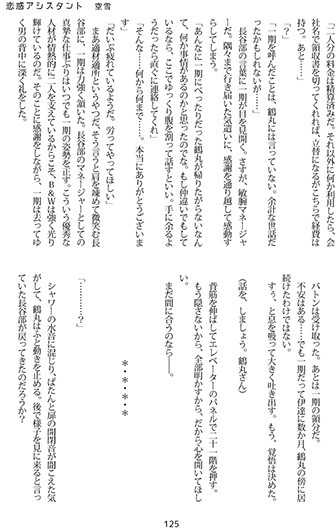 恋惑アシスタント　空雪
「二人分の料金は精算済みだ。それ以外に何か利用したら、会
社名で領収書を切ってくれれば、立替になるがこちらで経費は
持つ。あと……」
「？」
「一期を呼んだことは、鶴丸に言っていない。余計な世話だ
ったかもしれないが……」
　長谷部の言葉に一期が目を見開く。さすが、敏腕マネージャ
ーだ。隅々まで行き届いた気遣いに、感謝を通り越して感動す
る。
「あんなに一期にべったりだった鶴丸が帰りたがらないなん
て、何か事情があるのかと思ったのでな。もし仲違いでもして
いるなら、ここでゆっくり腹を割って話すといい。手に余るよ
うだったら直ぐに連絡してくれ」
「そんな……何から何まで……、本当にありがとうございま
す」
「だいぶ疲れているようだ。労ってやってほしい」
　まあ適材適所というやつだ。そう言うと肩を竦めて微笑む長
谷部に、一期は力強く頷いた。長谷部のマネージャーとしての
真摯な仕事ぶりはいつも一期の姿勢を正す。こういう優秀な
人材が情熱的に二人を支えているからこそ、B&Wは強く光り
輝けているのだ。そのことに感謝をしながら、一期は去ってゆ
く男の背中に深く礼をした。
　バトンは受け取った。あとは一期の領分だ。
　不安はある……でも一期だって伊達に数か月、鶴丸の傍に居
続けたわけではない。
　すぅ、と息を吸って大きく吐き出す。もう、覚悟は決めた。
（話を、しましょう、鶴丸さん）
　背筋を伸ばしてエレベーターのパネルで二十一階を押す。
　もう隠さないから、全部明かすから、だから心を開いてほし
い。
　まだ間に合うのなら――。
＊・＊・＊・＊
「…………？」
　シャワーの水音に混じり、ぱたんと扉の開閉音が聞こえた気
がして、鶴丸はふと動きを止める。後で様子を見に来ると言っ
ていた長谷部が戻ってきたのだろうか？
125